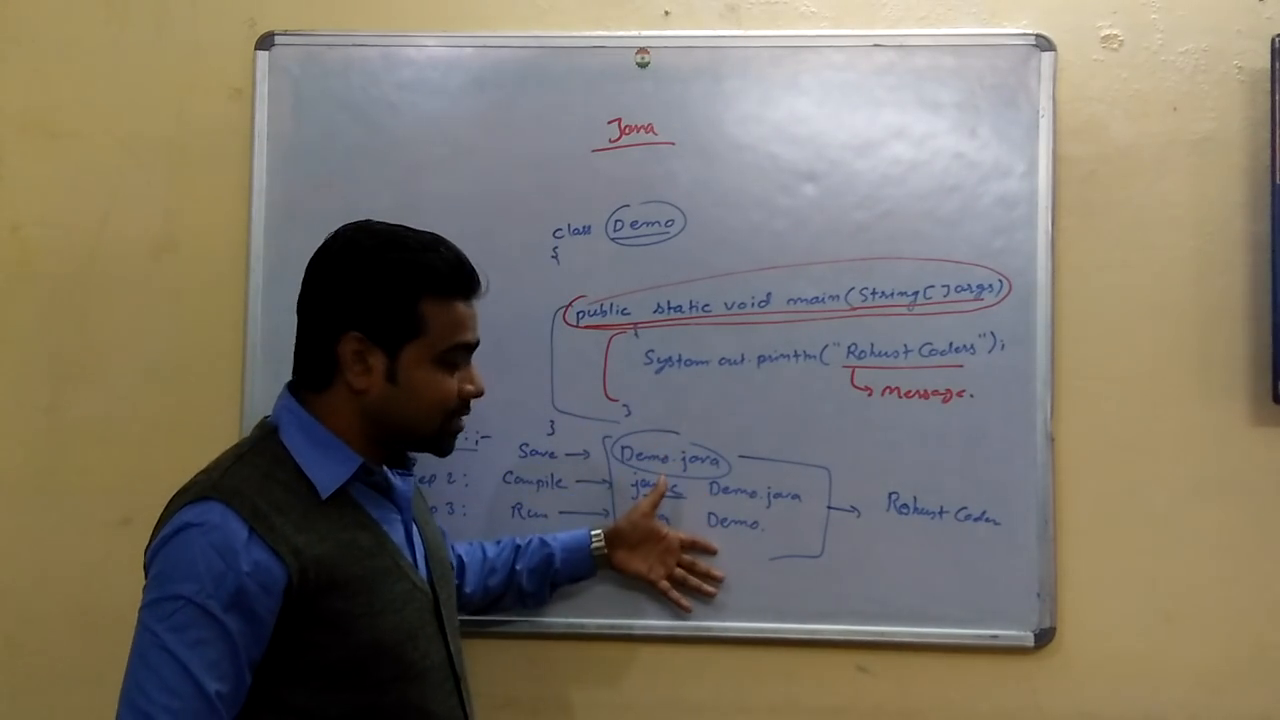 Java
class Demo
{
public static void main(String[]args)
{
System.out.println("Robust Coders");
Message.
}
}
:-
Save → Demo.java
ep 2: Compile → javac Demo.java
3: Run → Demo.
→ Robust Coder